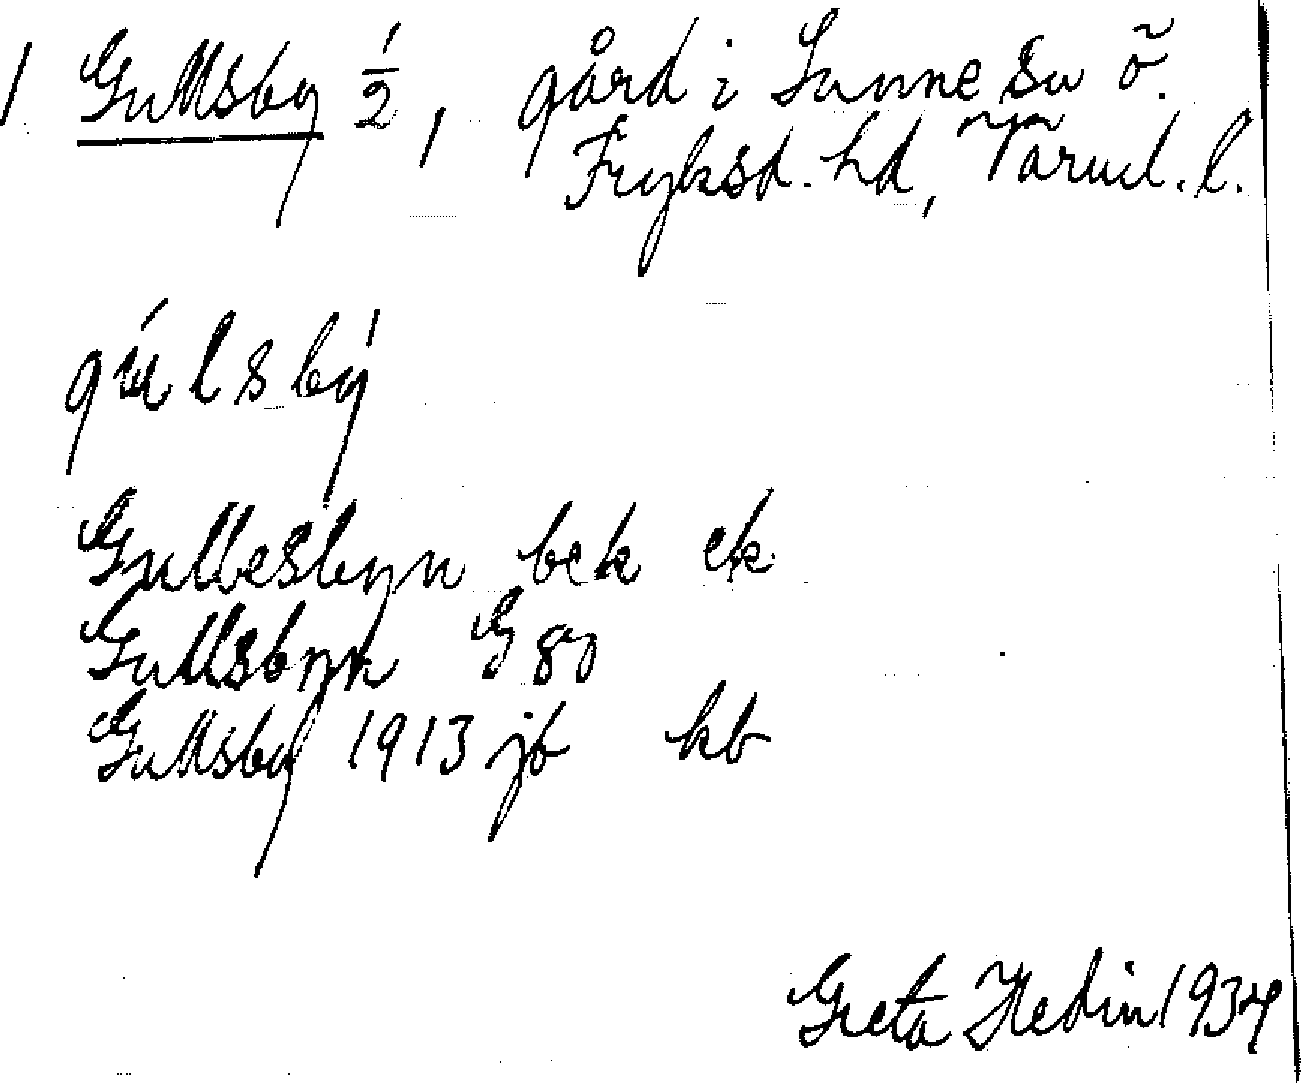 1 Gullsby 1/2, gård i Sunne sn ö.
Fryksd. hd, Värml. l.
gúlsbý
Gullesbyn bek ek
Gullsbyn G 83
Gullsby 1913 jb kb
Greta Hedin 1934